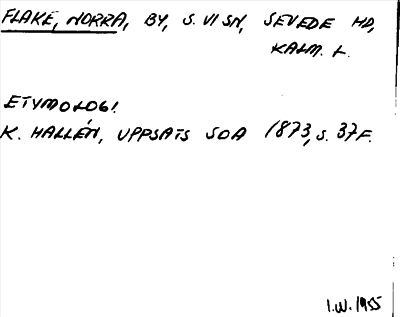 FLAKE, NORRA, BY, S. VI SN, SEVEDE HD,
KALM. L.
ETYMOLOGI
K. HALLÉN, UPPSATS SOA 1873, S. 37 F.
I.W. 1955